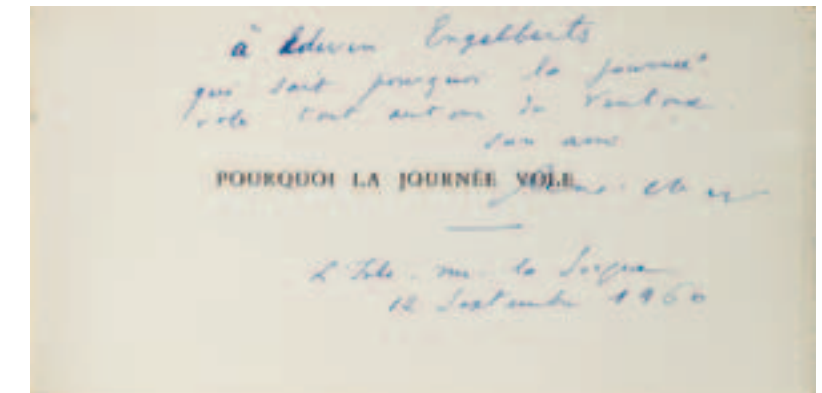 à Edwin Engelberts
qui sait pourquoi la journée
vole tout autour du Ventoux
son ami
POURQUOI LA JOURNÉE VOLE
René Char
L'Isle sur la Sorgue
12 Septembre 1960